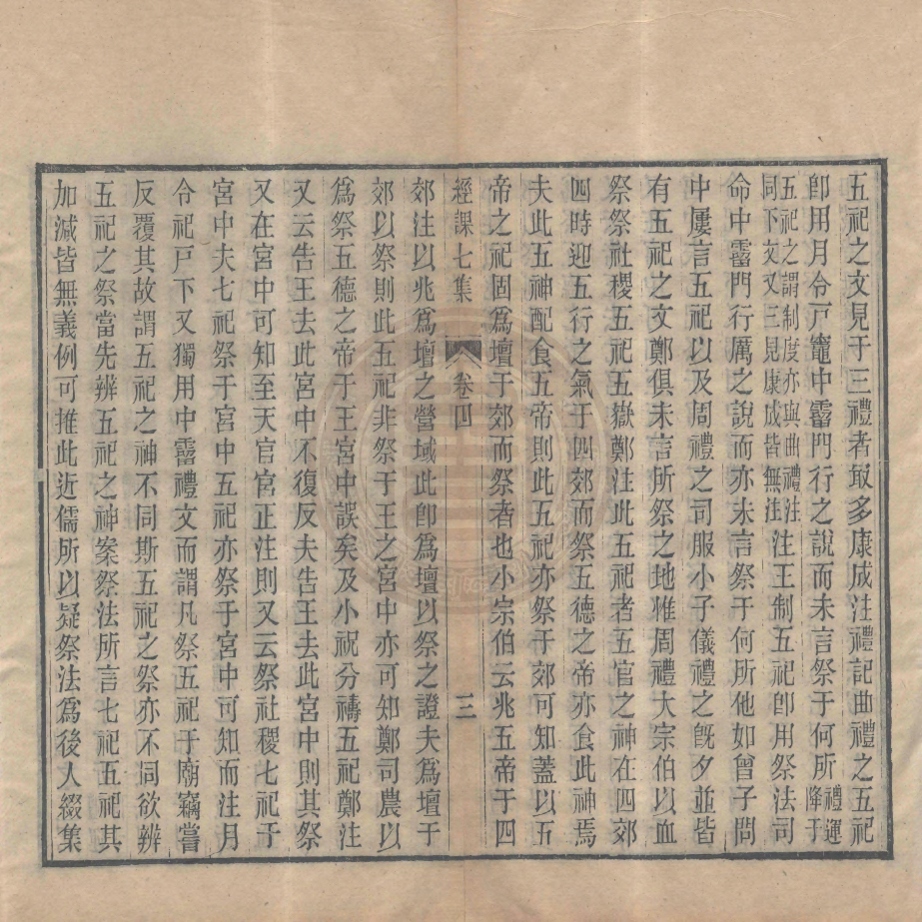 五祀之文見于三禮者最多康成注禮記曲禮之五祀
卽用月令戸竈中霤門行之說而未言祭于何所禮運降于
五祀之謂制度亦與曲禮注同下文又三見康成皆無注注王制五祀卽用祭法司
命中霤門行厲之說而亦未言祭于何所他如曾子問
中屢言五祀以及周禮之司服小子儀禮之旣夕並皆
有五祀之文鄭俱未言所祭之地惟周禮大宗伯以血
祭祭社稷五祀五嶽鄭注此五祀者五官之神在四郊
四時迎五行之氣于四郊而祭五德之帝亦食此神焉
夫此五神配食五帝則此五祀亦祭于郊可知蓋以五
帝之祀固爲壇于郊而祭者也小宗伯云兆五帝于四
經課七集 卷四 三
郊注以兆爲壇之營域此卽爲壇以祭之證夫爲壇于
郊以祭則此五祀非祭于王之宮中亦可知鄭司農以
爲祭五德之帝于王宮中誤矣及小祝分禱五祀鄭注
又云告王去此宮中不復反夫告王去此宮中則其祭
又在宮中可知至天官宮正注則又云祭社稷七祀于
宮中夫七祀祭于宮中五祀亦祭于宮中可知而注月
令祀戸下又獨用中霤禮文而謂凡祭五祀于廟竊嘗
反覆其故謂五祀之神不同斯五祀之祭亦不同欲辨
五祀之祭當先辨五祀之神案祭法所言七祀五祀其
加減皆無義例可推此近儒所以疑祭法爲後人綴集